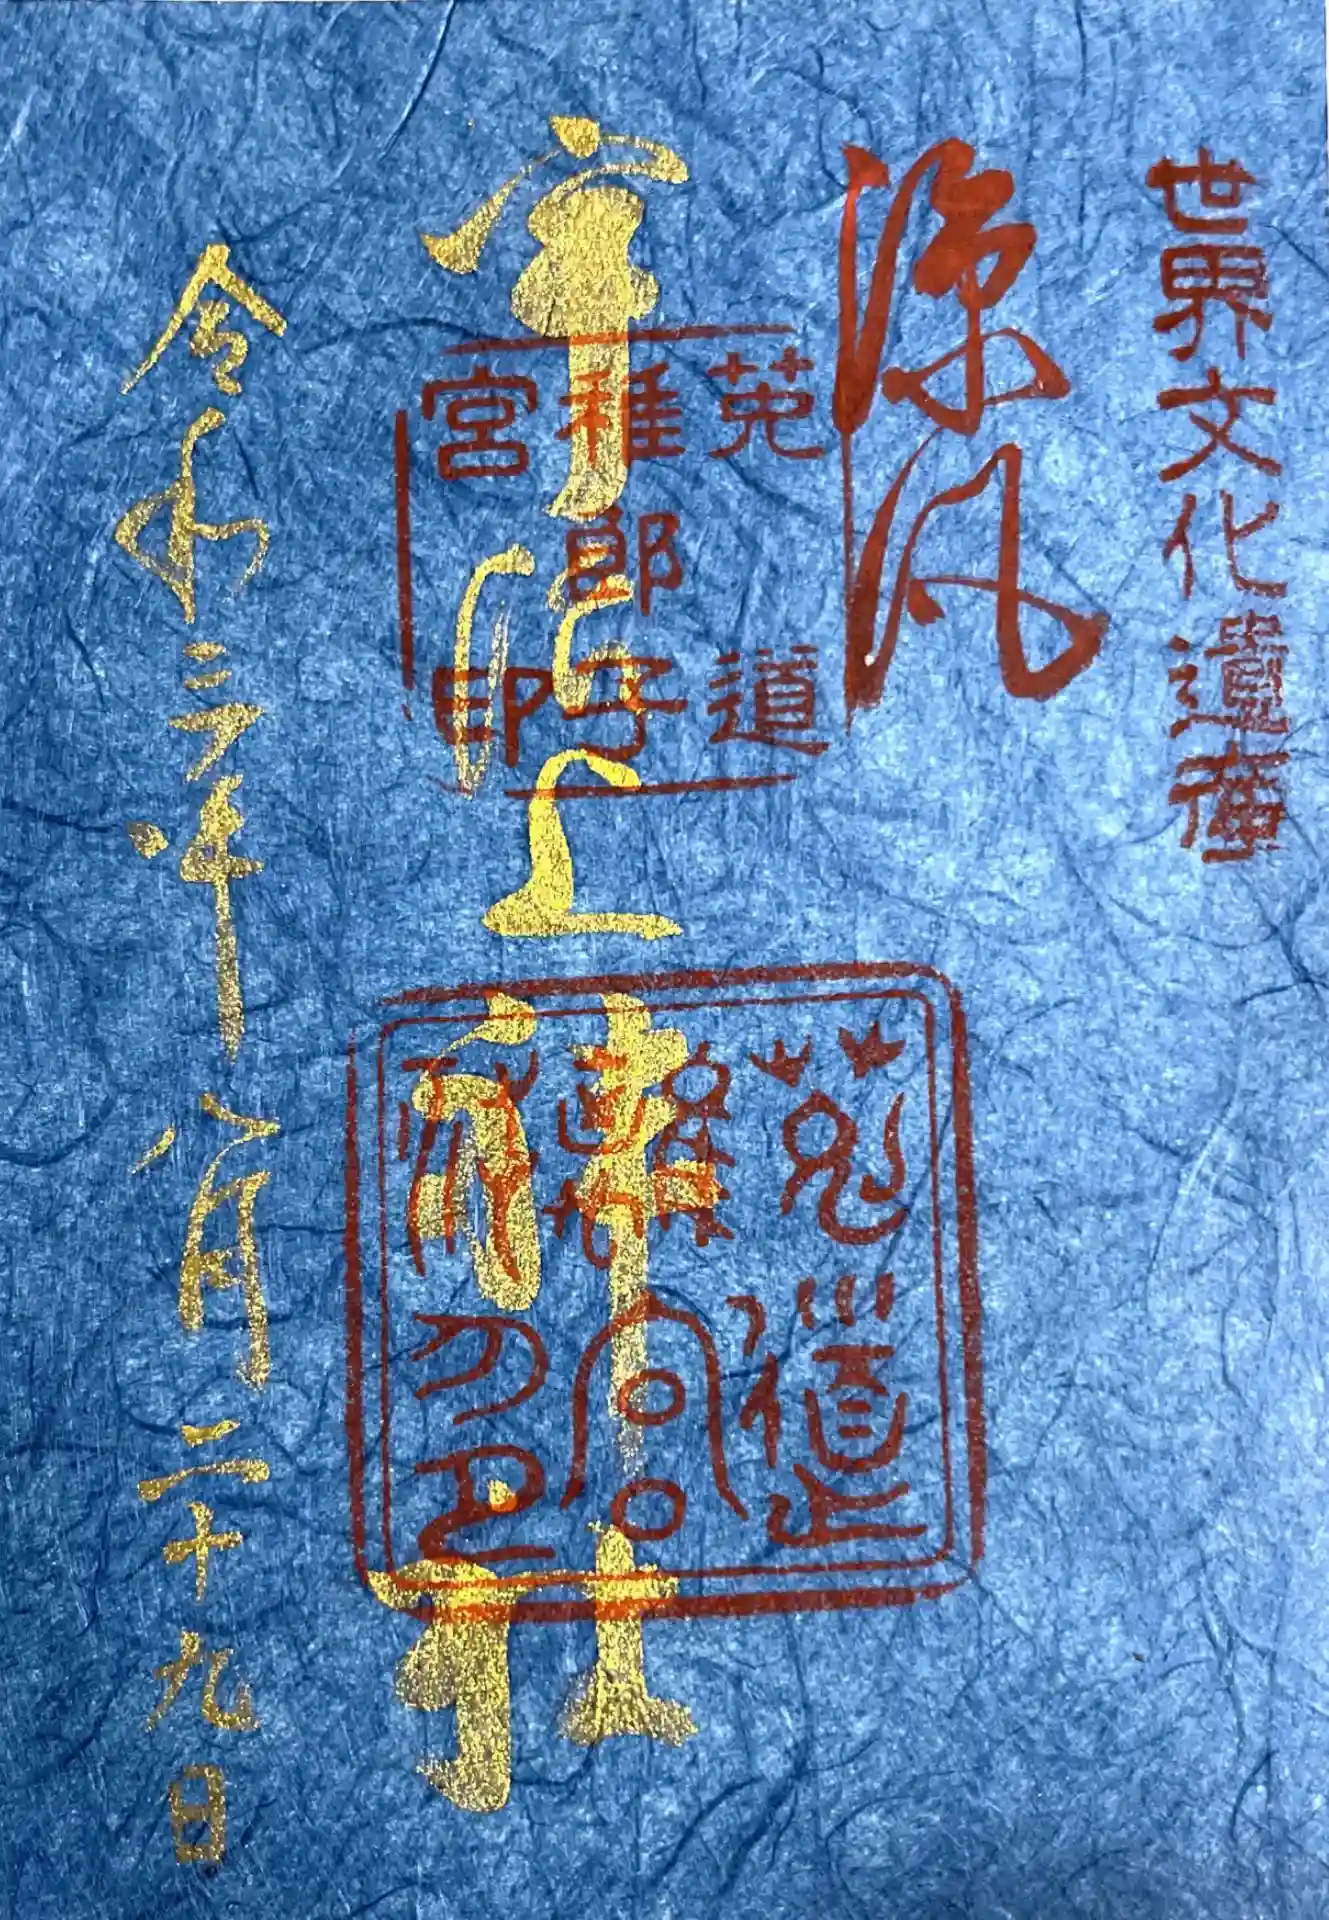 世界文化遺産
涼風
宇治上神社
菟道
稚郎子
宮印
菟道
令和三年八月二十九日